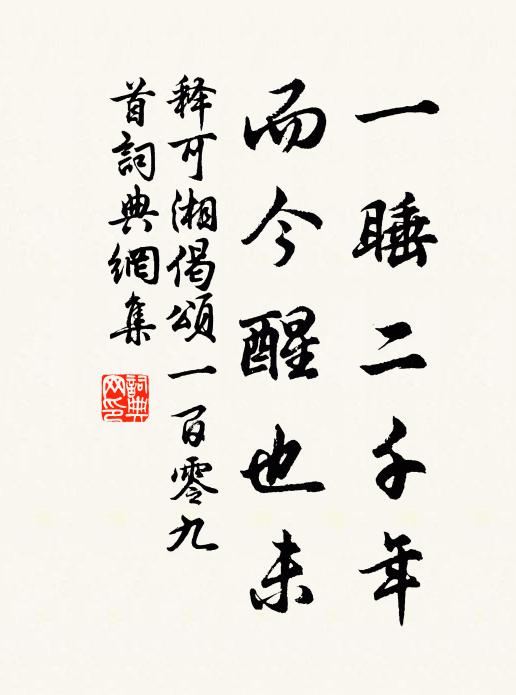 一睡二千年
而今醒也未
释可湘偈頌一百零九
首詞典網集
詞典网印